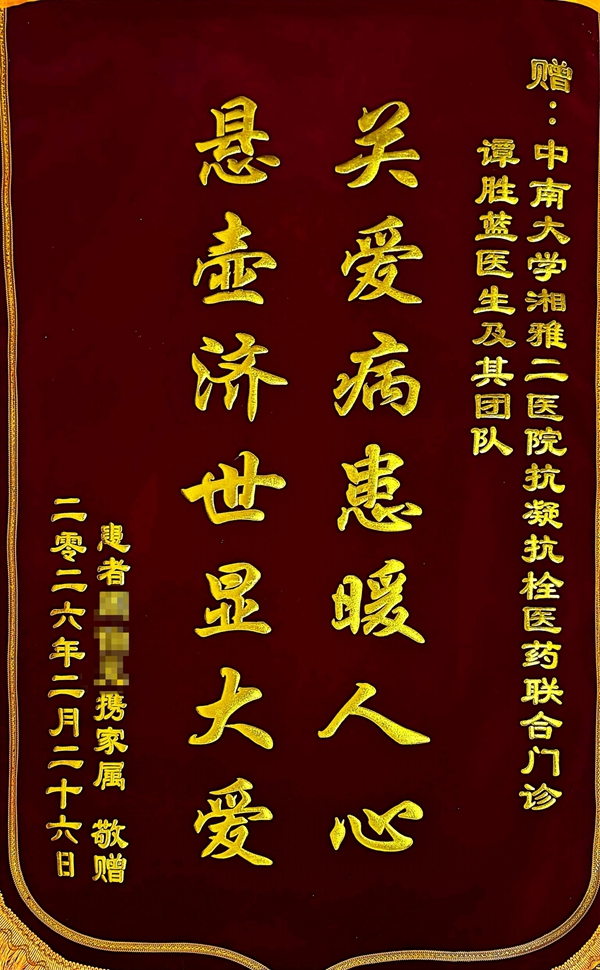 赠：中南大学湘雅二医院抗凝抗栓医药联合门诊
谭胜蓝医生及其团队
关爱病患暖人心
悬壶济世显大爱
患者携家属 敬赠
二零二六年二月二十六日